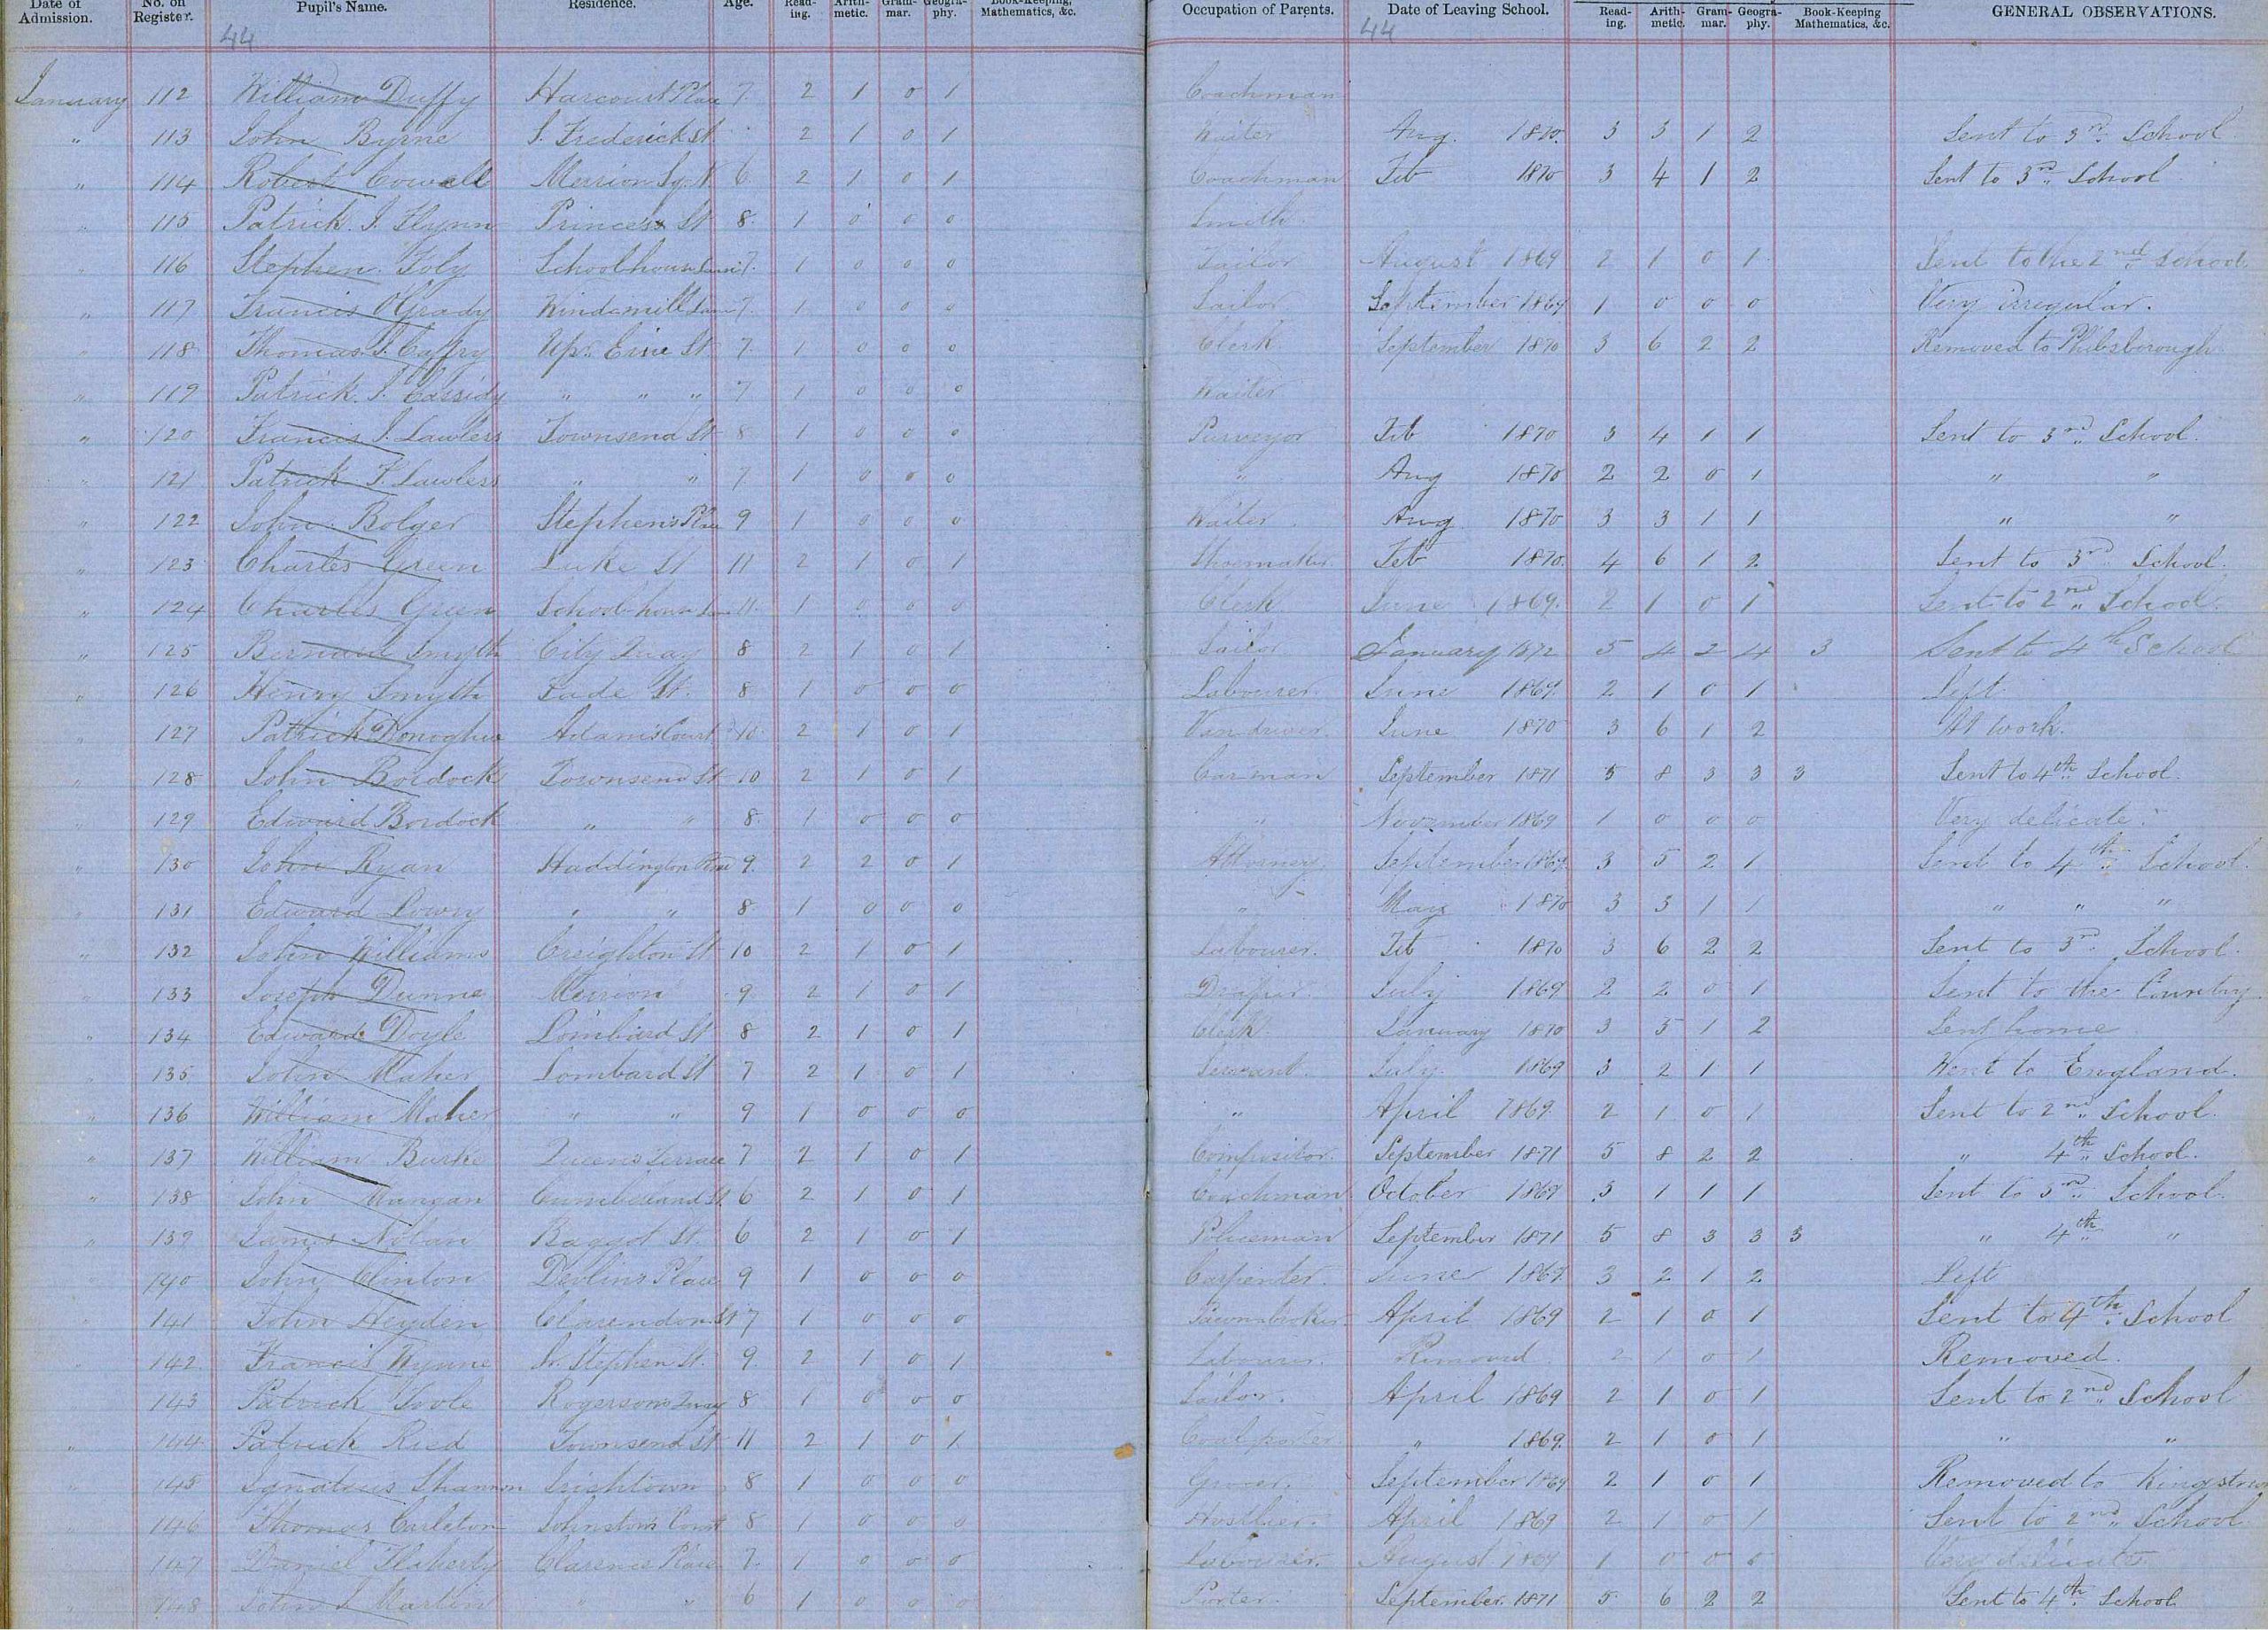 Date of Admission. No. on Register. Pupil's Name. Residence. Age. Read-ing. Arith-metic. Gram-mar. Geogra-phy. Book-Keeping, Mathematics, &c. Occupation of Parents. Date of Leaving School. Read-ing. Arith-metic. Gram-mar. Geogra-phy. Book-Keeping Mathematics, &c. GENERAL OBSERVATIONS.
44 44
January 112 William Duffy Harcourt Place 7 2 1 0 1 Coachman
" 113 John Byrne S. Frederick St. 2 1 0 1 Waiter Aug. 1870. 3 3 1 2 Sent to 3rd School
" 114 Robert Cowall Merrion Sq. N 6 2 1 0 1 Coachman Feb 1870 3 4 1 2 Sent to 3rd School
" 115 Patrick J. Flynn Princess St 8 1 0 0 0 Smith
" 116 Stephen Foly Schoolhouse Lane 7 1 0 0 0 Tailor August 1869 2 1 0 1 Sent to the 2nd School
" 117 Francis O'Grady Windamill Lane 7 1 0 0 0 Sailor September 1869 1 0 0 0 Very irregular.
" 118 Thomas J. Caffry Upr. Erne St 7 1 0 0 0 Clerk September 1870 3 6 2 2 Removed to Phibsborough
" 119 Patrick J. Cassidy " " " 7 1 0 0 0 Waiter
" 120 Francis J. Lawless Townsend St 8 1 0 0 0 Purveyor Feb 1870 3 4 1 1 Sent to 3rd School.
" 121 Patrick F. Lawless " " 7 1 0 0 0 " Aug 1870 2 2 0 1 " "
" 122 John Bolger Stephen's Place 9 1 0 0 0 Waiter. Aug 1870 3 3 1 1 " "
" 123 Charles Green Luke St 11 2 1 0 1 Shoemaker. Feb 1870. 4 6 1 2 Sent to 3rd School.
" 124 Charles Green Schoolhouse Lane 11 1 0 0 0 Clerk June 1869. 2 1 0 1 Sent to 2nd School.
" 125 Bernard Smyth City Quay 8 2 1 0 1 Sailor January 1872 5 4 2 4 3 Sent to 4th School
" 126 Henry Smyth Fade St. 8 1 0 0 0 Labourer. June 1869. 2 1 0 1 Left
" 127 Patrick Donoghue Adams Court 10 2 1 0 1 Van driver. June 1870 3 6 1 2 At work.
" 128 John Bordock Townsend St 10 2 1 0 1 Carman September 1871 5 8 3 3 3 Sent to 4th School.
" 129 Edward Bordock " " 8 1 0 0 0 " November 1869 1 0 0 0 Very delicate.
" 130 John Ryan Haddington Place 9. 2 2 0 1 Attorney September 1869. 3 5 2 1 Sent to 4th School.
" 131 Edward Lowry " " 8 1 0 0 0 " May 1870 3 3 1 1 " " "
" 132 John Williams Creighton St 10 2 1 0 1 Labourer. Feb 1870 3 6 2 2 Sent to 3rd School.
" 133 Joseph Dunne Merrion 9 2 1 0 1 Draper. July 1869 2 2 0 1 Sent to the Country
" 134 Edward Doyle Lombard St 8 2 1 0 1 Clerk January 1870 3 5 1 2 Sent home
" 135 John Maher Lombard St 7 2 1 0 1 Servant. July. 1869 3 2 1 1 Went to England.
" 136 William Maher " " 9 1 0 0 0 " April 1869. 2 1 0 1 Sent to 2nd School.
" 137 William Burke Queens Terrace 7 2 1 0 1 Compositor. September 1871 5 8 2 2 " 4th School.
" 138 John Mangan Cumberland St. 6 2 1 0 1 Coachman October 1869 3 1 1 1 Sent to 3rd School.
" 139 James Nolan Baggot St. 6 2 1 0 1 Policeman September 1871 5 8 3 3 3 " 4th "
" 140 John Clinton Devlins Place 9 1 0 0 0 Carpenter. June 1869. 3 2 1 2 Left
" 141 John Heyden Clarendon St 7 1 0 0 0 Pawnbroker. April 1869 2 1 0 1 Sent to 4th School
" 142 Francis Wynne Sr. Stephen St. 9 2 1 0 1 Labourer. Removed 2 1 0 1 Removed.
" 143 Patrick Toole Rogersons Quay 8 1 0 0 0 Sailor. April 1869 2 1 0 1 Sent to 2nd School
" 144 Patrick Ried Townsend St 11 2 1 0 1 Coal porter " 1869. 2 1 0 1 " "
" 145 Ignatius Shannon Irishtown 8 1 0 0 0 Grocer. September 1869 2 1 0 1 Removed to
" 146 Thomas Carleton Johnston's Court 8 1 0 0 0 Hostlier. April 1869 2 1 0 1 Sent to 2nd School
" 147 Daniel Flaherty Clarence Place 7 1 0 0 0 Labourer. August 1869 1 0 0 0 Very delicate.
" 148 John J. Martin " " 6 1 0 0 0 Porter. September. 1871 5 6 2 2 Sent to 4th School